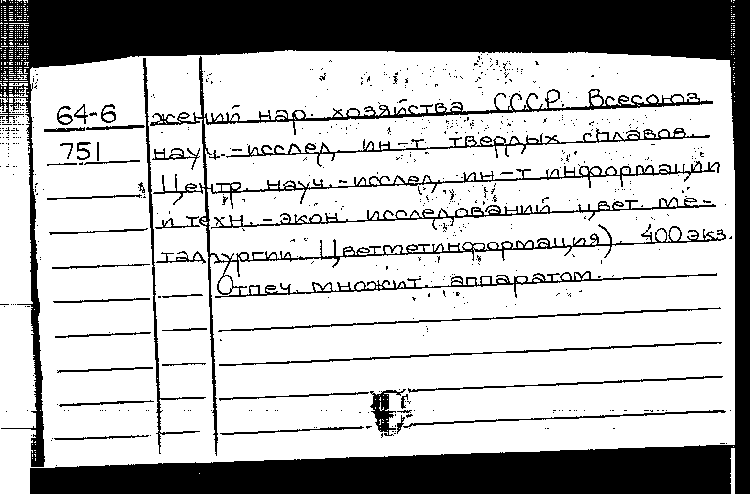 64-6 жений нар. хозяйства СССР. Всесоюз.
751 науч.-исслед. ин-т твердых сплавов.
Центр. науч.-исслед. ин-т информации
и техн.-экон. исследований цвет. ме-
таллургии. Цветметинформация). 400 экз.
Отпеч. множит. аппаратом.